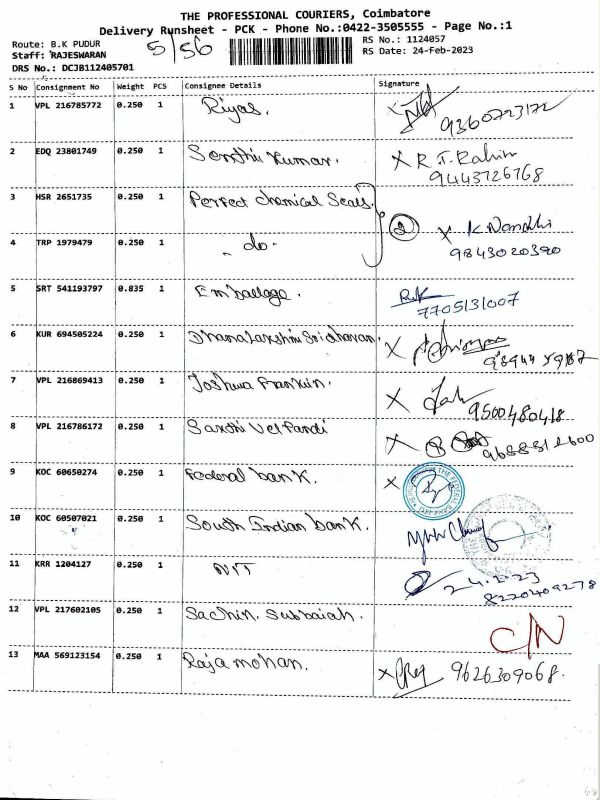 THE PROFESSIONAL COURIERS, Coimbatore
Delivery Runsheet - PCK - Phone No.:0422-3505555 - Page No.:1
Route: B.K PUDUR
5/56
RS No.: 1124057
Staff: RAJESWARAN
RS Date: 24-Feb-2023
DRS No.: DCJB112405701
S No Consignment No Weight PCS Consignee Details Signature
1 VPL 216785772 0.250 1 Riyas.
9360723172
2 EDQ 23801749 0.250 1 Senthil Kumar. X R.T. Rahim
9443726768
3 HSR 2651735 0.250 1 Perfect chemical Seals
② X K. Nandhi
4 TRP 1979479 0.250 1 - do -
9843020390
5 SRT 541193797 0.835 1 Emballage.
7705131007
6 KUR 694505224 0.250 1 Dhanalakshmi Sridharan. X
7 VPL 216869413 0.250 1 Joshwa Franklin. X
9500480418
8 VPL 216786172 0.250 1 Sakthi Vel Pandi X
9688312600
9 KOC 60650274 0.250 1 Federal bank. X
10 KOC 60507021 0.250 1 South Indian bank.
11 KRR 1204127 0.250 1 NIT
24.2.23
8220409278
12 VPL 217602105 0.250 1 Sachin. Subbaiah.
C/N
13 MAA 569123154 0.250 1 Raja mohan. X 9626309068.